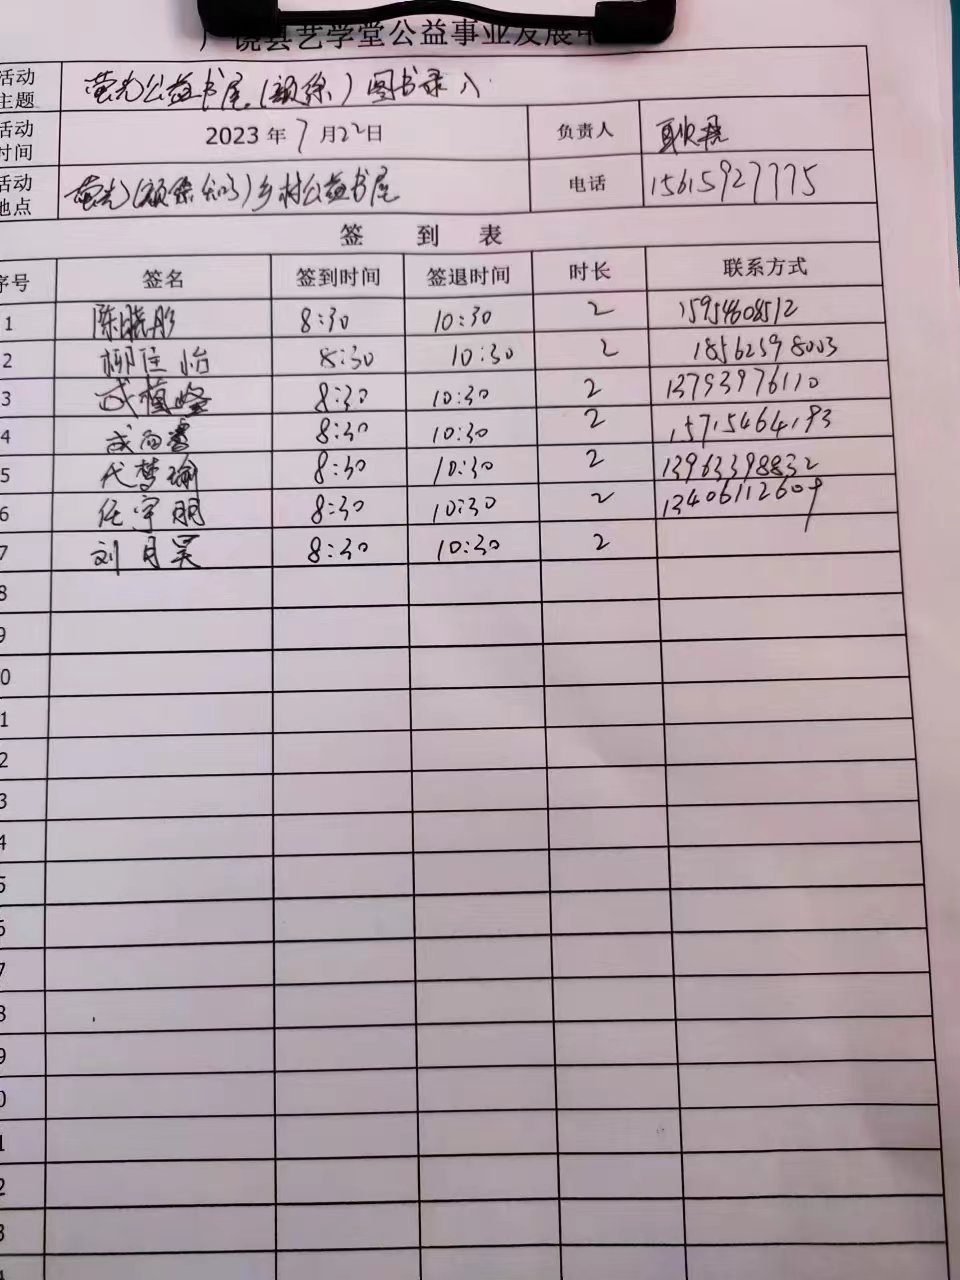 广饶县艺学堂公益事业发展中
活动主题 萤光公益书屋(颜徐)图书录入
活动时间 2023年7月22日 负责人
活动地点 萤光(颜徐)乡村公益书屋 电话 15615927775
签到表
序号 签名 签到时间 签退时间 时长 联系方式
1 陈晓彤 8:30 10:30 2 15954608512
2 柳佳怡 8:30 10:30 2 18562598003
3 成植峰 8:30 10:30 2 13793976110
4 成向 8:30 10:30 2 15715464193
5 代梦瑜 8:30 10:30 2 13963398832
6 任宇朋 8:30 10:30 2 13406112609
7 刘月昊 8:30 10:30 2
8
9
0
1
2
3
4
5
6
7
8
9
0
1
2
3